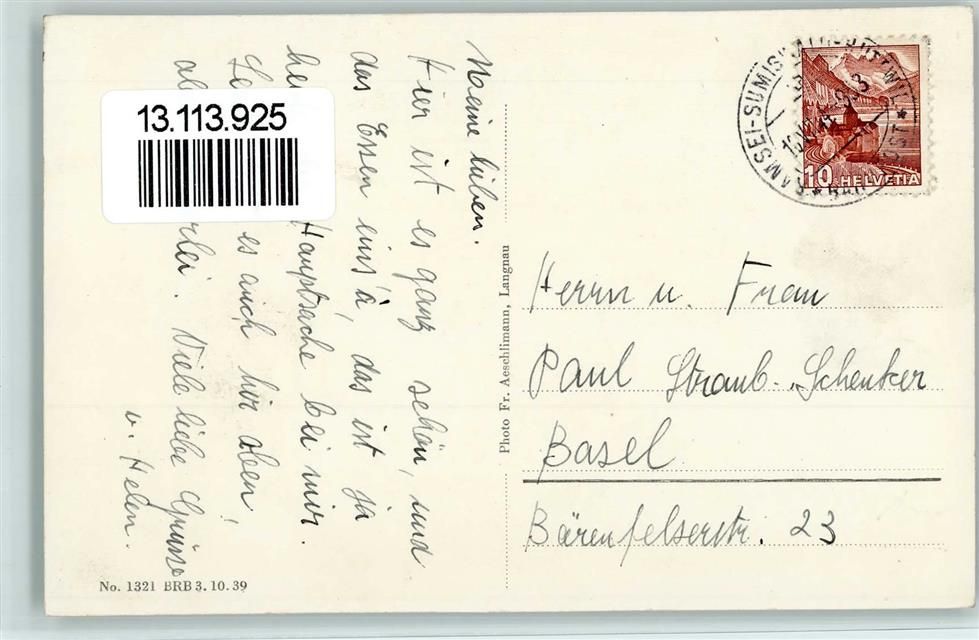 13.113.925
Meine lieben.
Hier ist es ganz schön, und
das Essen eins à, das ist ja
Hauptsache bei mir.
es auch hir oben,
Viele liebe Grüsse
v. Helen.
No. 1321 BRB 3. 10. 39
Photo Fr. Aeschlimann, Langnau
10 HELVETIA
RAMSEI-SUMISWALD-HUTTWIL
Herrn u. Frau
Paul Straub-Schenker
Basel
Bärenfelserstr. 23